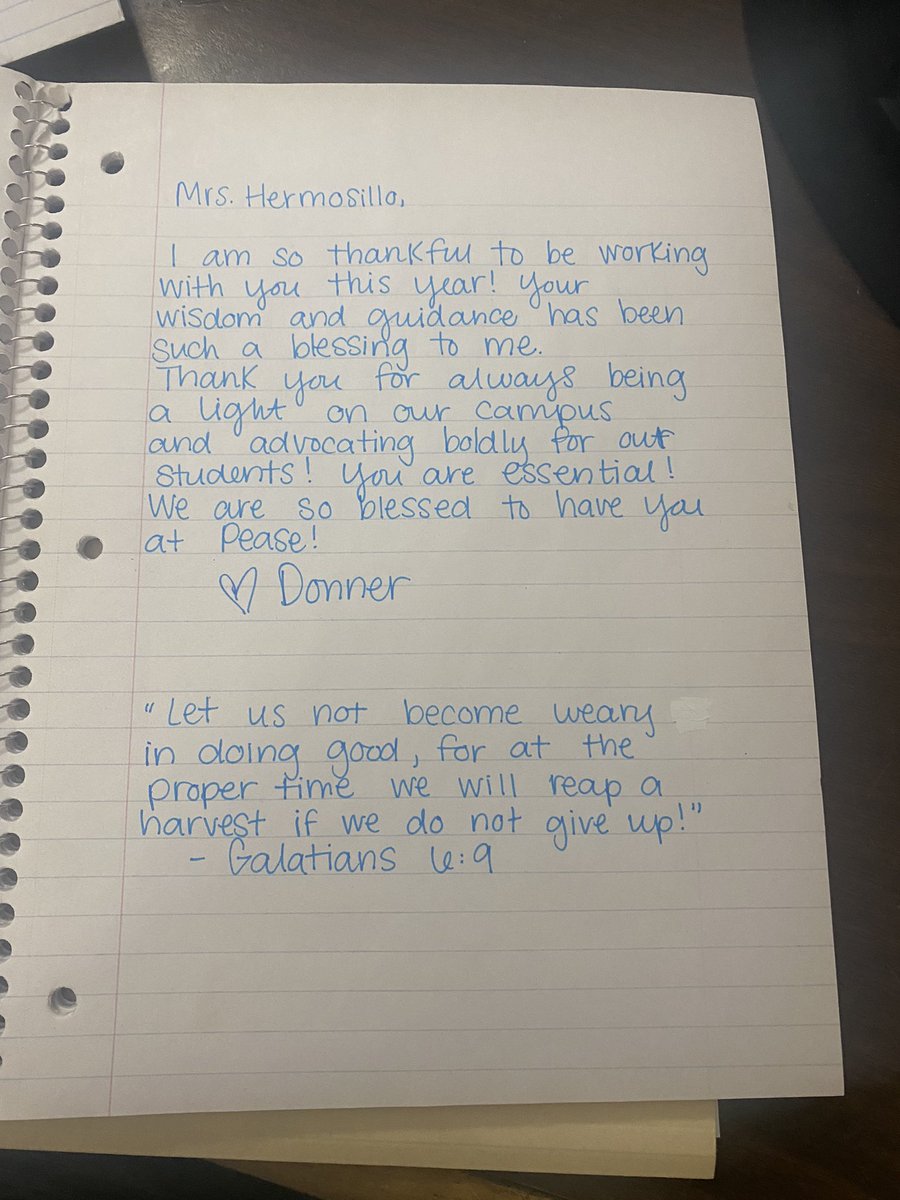 Mrs. Hermosillo,
I am so thankful to be working
with you this year! Your
wisdom and guidance has been
such a blessing to me.
Thank you for always being
a light on our campus
and advocating boldly for our
students! You are essential!
We are so blessed to have you
at Pease!
♡ Donner
"Let us not become weary
in doing good, for at the
proper time we will reap a
harvest if we do not give up!"
- Galatians 6:9